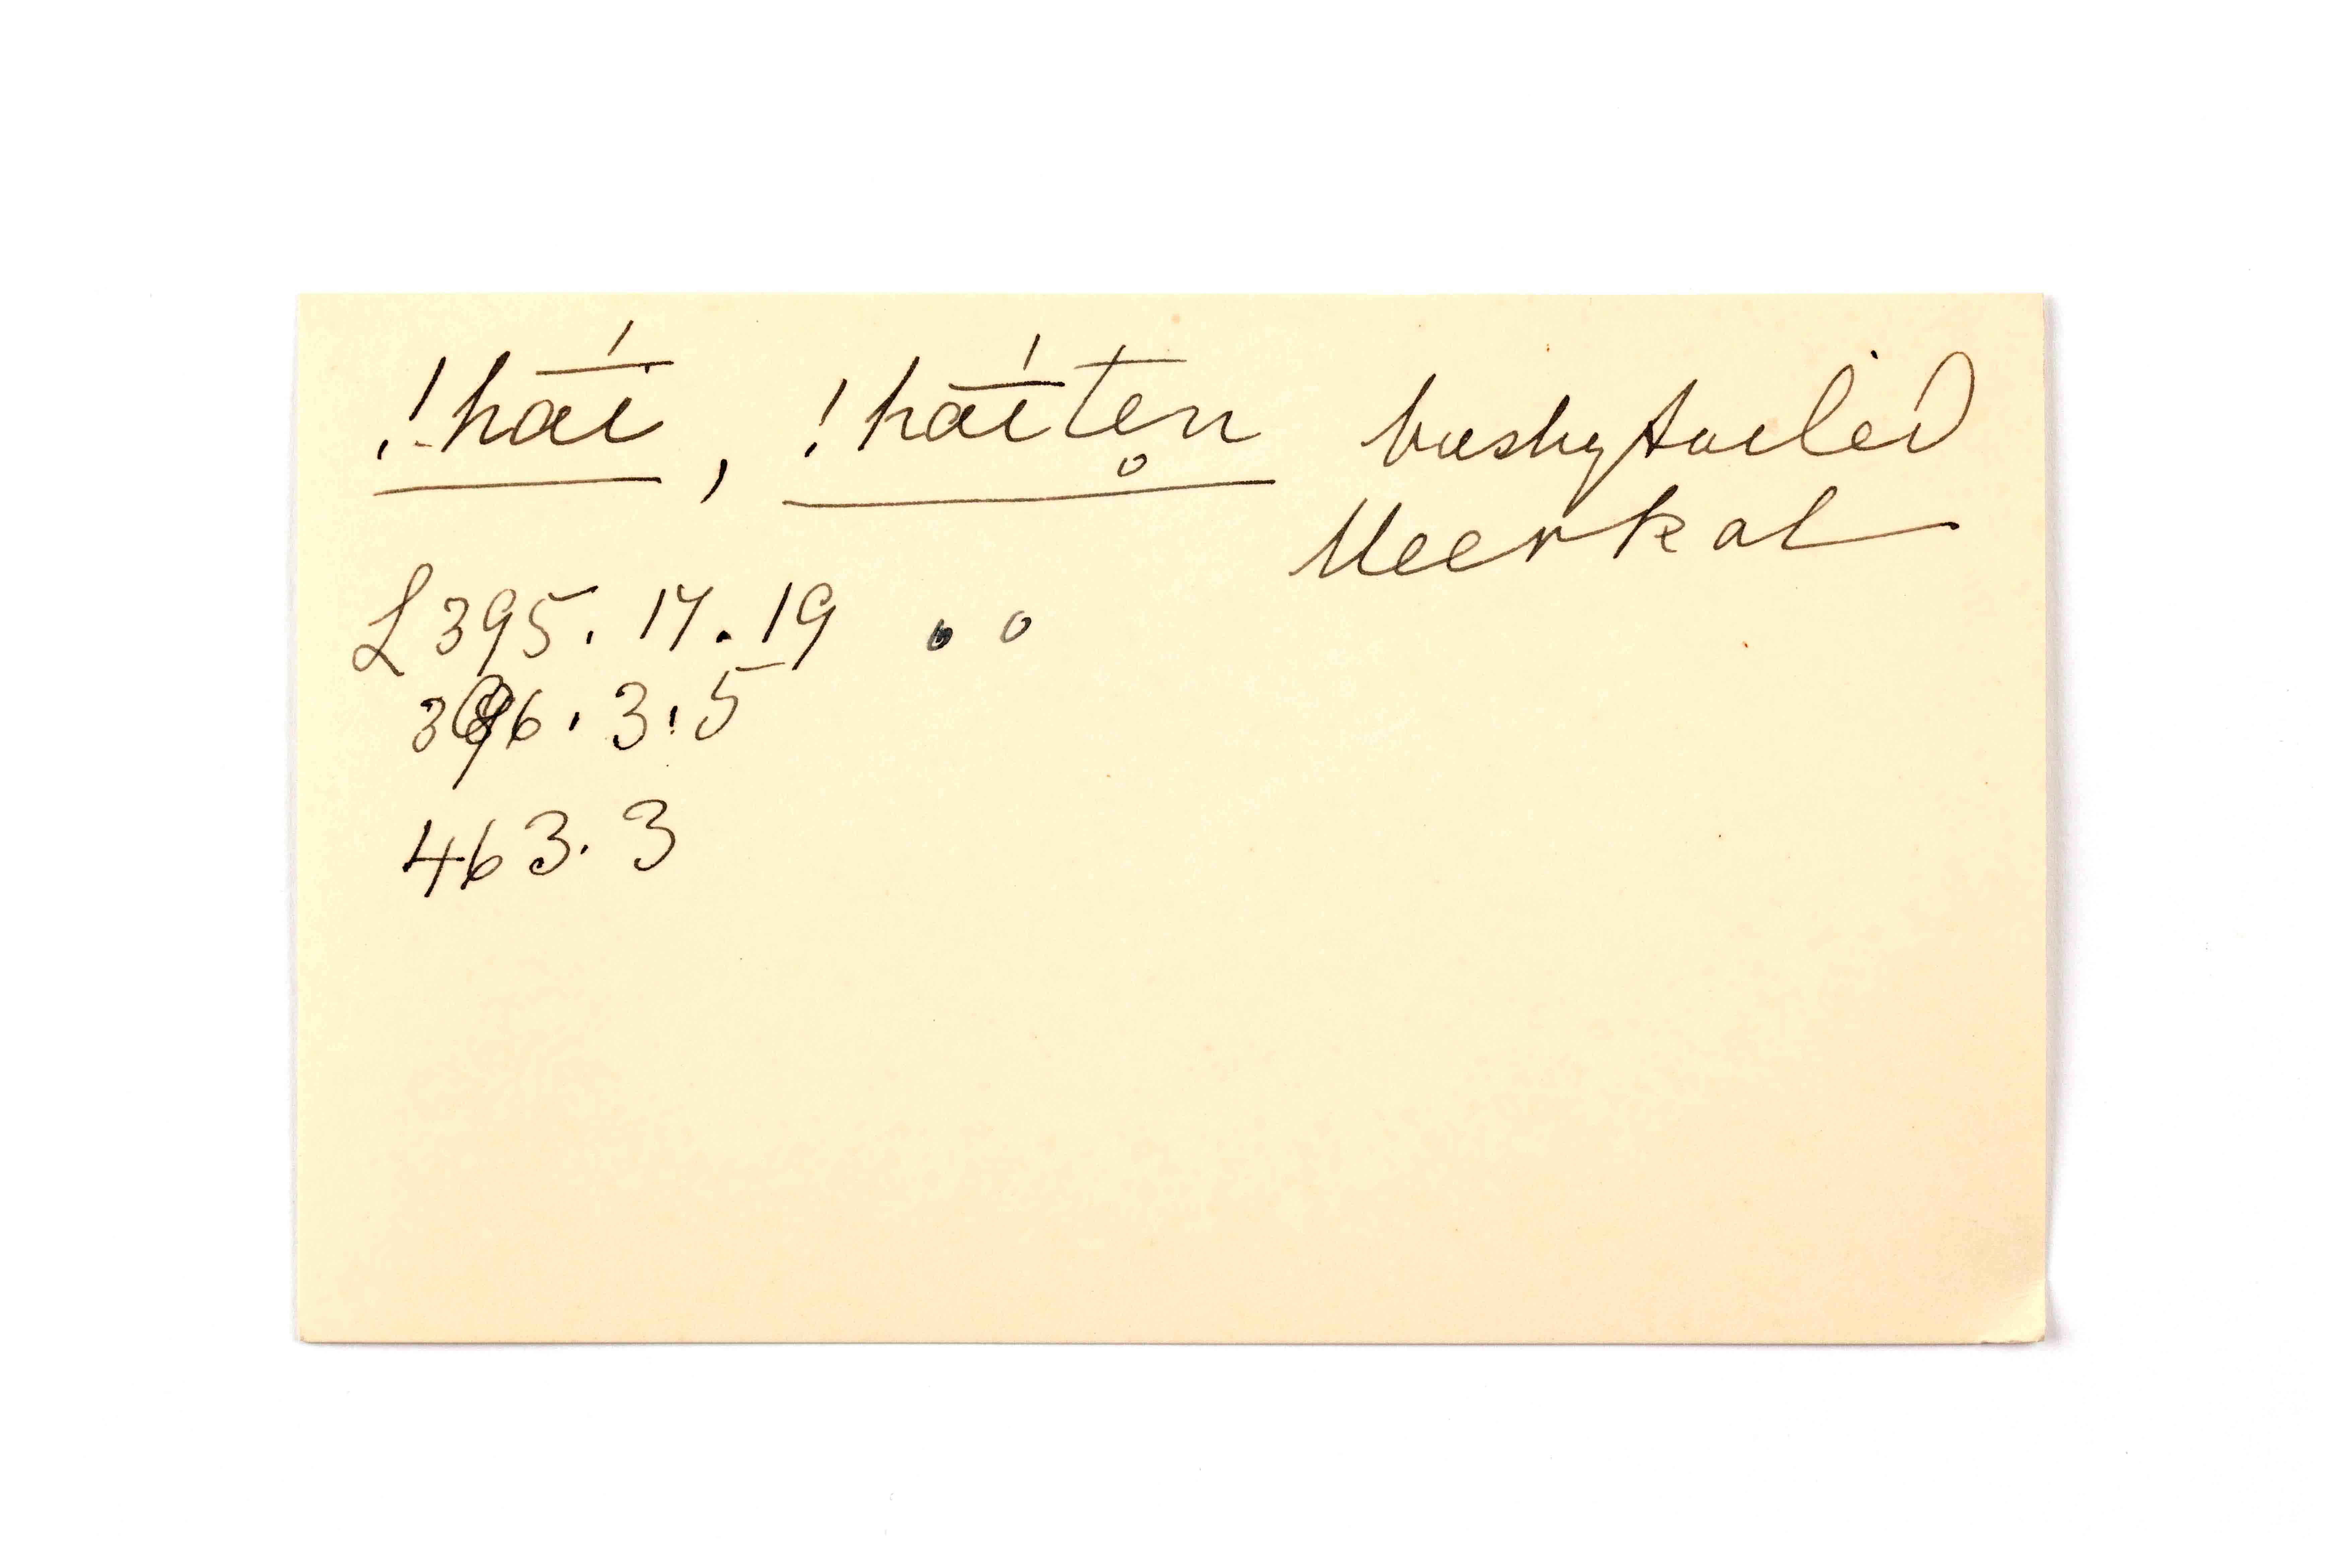 !hā́i, !hā́itẹn bushytailed
Meerkat
L 395. 17. 19
396. 3. 5
463. 3